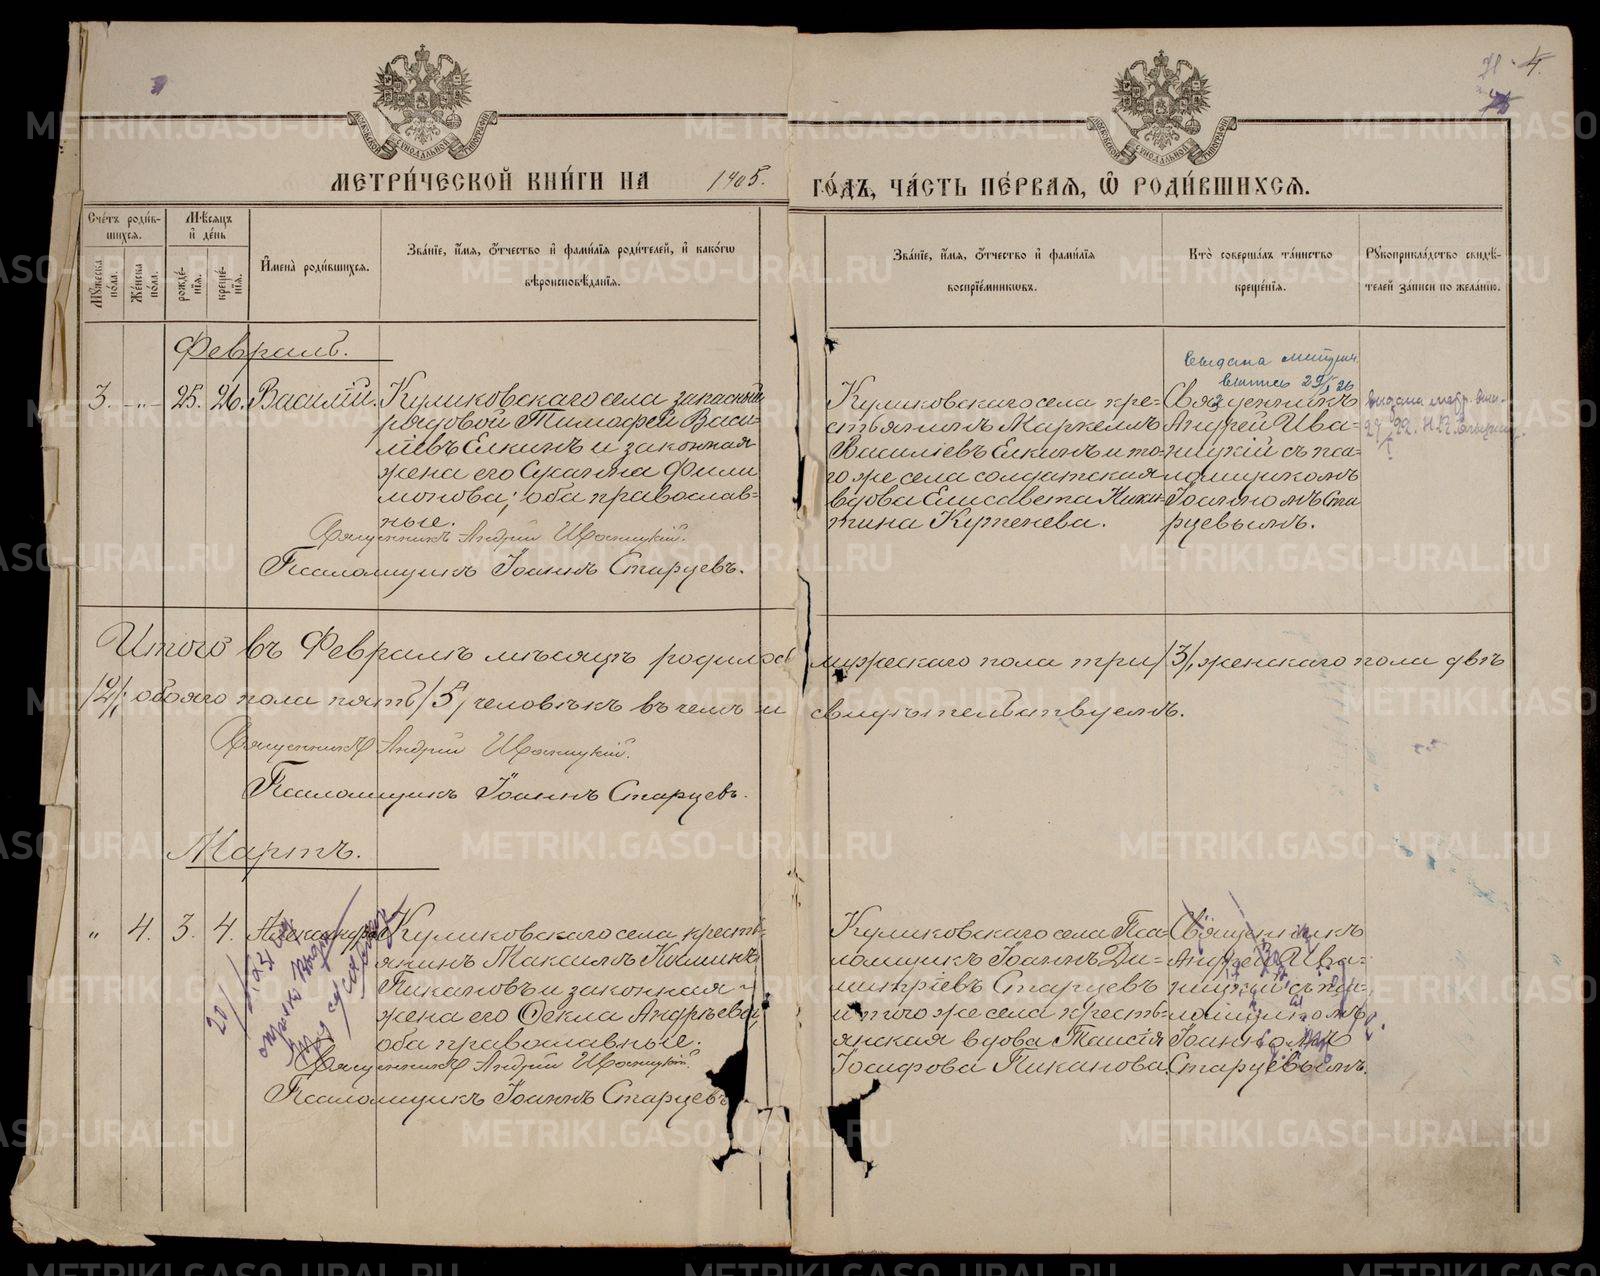 МЕТРИ́ЧЕСКОЙ КНИ́ГИ НА 1905. ГО́ДЪ, ЧА́СТЬ ПЕ́РВАЯ, Ѡ҆ РОДИ́ВШИХСЯ.
4.
Сче́тъ роди́в-
шихся.
Мѣ́сяцъ
и҆ де́нь
Му́жеска
по́ла.
Же́нска
по́ла.
рожде́-
нїя.
креще́-
нїя.
И҆мена̀ роди́вшихся.
Зва́нїе, и҆́мя, ѻ҆́тчество и҆ фами́лїя роди́телей, и҆ како́гѡ
вѣроисповѣ́данїя.
Зва́нїе, и҆́мя, ѻ҆́тчество и҆ фами́лїя
воспрїе́мникѡвъ.
Кто̀ соверша́лъ та́инство
креще́нїя.
Рꙋкоприкла́дство свидѣ́-
телей за́писи по жела́нїю.
Февраль.
3. -„- 25. 26. Василій.
Куликовскаго села запасный
рядовой Тимофей Васи-
ліевъ Елкинъ и законная
жена его Сусанна Фили
монова; оба православ-
ные.
Священникъ Андрей Иваницкій.
Псаломщикъ Іоаннъ Старцевъ.
Куликовскаго села кре-
стьянинъ Маркеллъ
Василіевъ Елкинъ и то-
го же села солдатская
вдова Елисавета Ники-
тина Кутенева.
выдана
Священникъ
Андрей Ива-
ницкій съ пса-
ломщикомъ
Іоанномъ Ста
рцевымъ.
выдана метр.
Итого въ Февралѣ мѣсяцѣ родилось мужескаго пола три /3/, женскаго пола двѣ
/2/; обоего пола пять /5/ человѣкъ въ чемъ и свидѣтельствуемъ.
Священникъ Андрей Иваницкій.
Псаломщикъ Іоаннъ Старцевъ.
Мартъ.
„ 4. 3. 4. Александра
Куликовскаго села кресть-
янинъ Максимъ Косминъ
Пикановъ и законная
жена его Ѳекла Андрѣева,
оба православные.
Священникъ Андрей Иваницкій.
Псаломщикъ Іоаннъ Старцевъ
Куликовскаго села Пса-
ломщикъ Іоаннъ Ди-
митріевъ Старцевъ
и того же села кресть-
янская вдова Таисія
Іосифова Пиканова.
Священникъ
Андрей Ива-
ницкій съ пса-
ломщикомъ
Іоанномъ
Старцевымъ.
METRIKI.GASO-URAL.RU